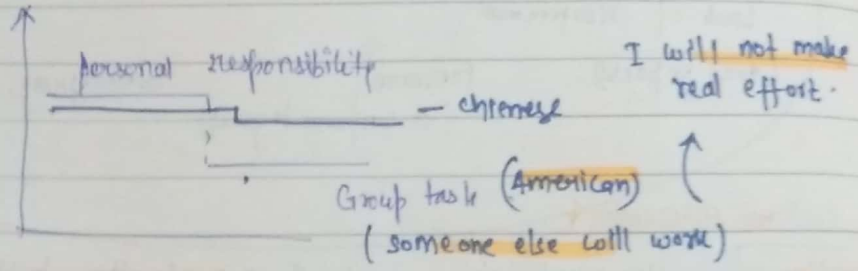 personal responsibility
I will not make
real effort.
— chienese
Group task (American)
(someone else will work)